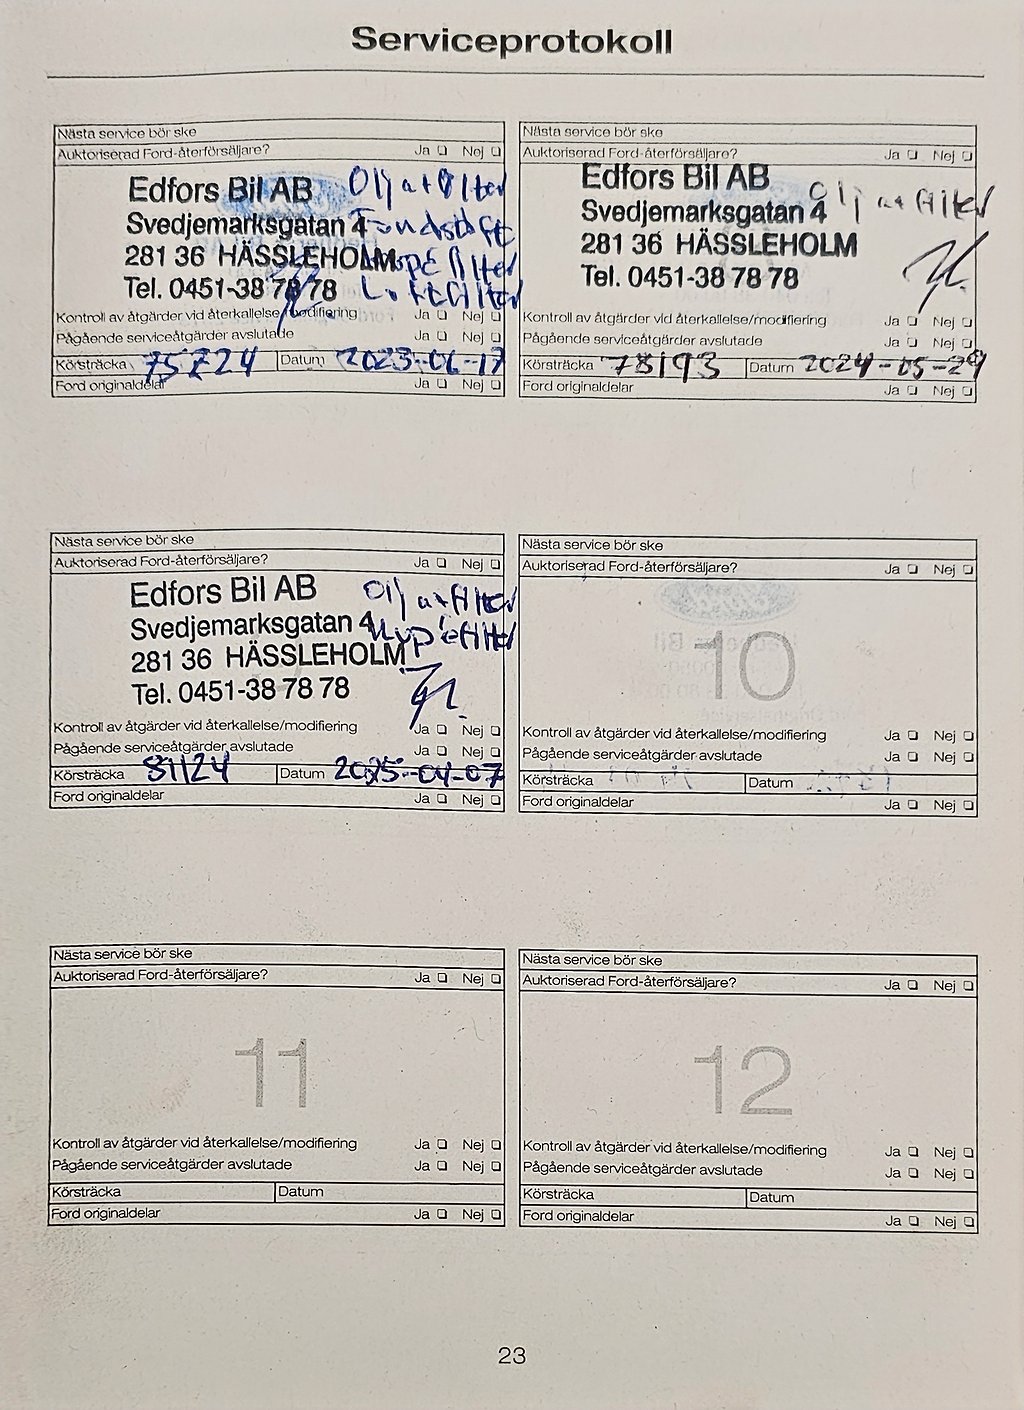 Serviceprotokoll
Nästa service bör ske
Auktoriserad Ford-återförsäljare? Ja Nej
Edfors Bil AB Olja+filter
Svedjemarksgatan 4
281 36 HÄSSLEHOLM filter
Tel. 0451-38 78 78 Luftfilter
Kontroll av åtgärder vid återkallelse/modifiering Ja Nej
Pågående serviceåtgärder avslutade Ja Nej
Körsträcka 75724 Datum 2023-06-17
Ford originaldelar Ja Nej
Nästa service bör ske
Auktoriserad Ford-återförsäljare? Ja Nej
Edfors Bil AB
Svedjemarksgatan 4 Olja+filter
281 36 HÄSSLEHOLM
Tel. 0451-38 78 78
Kontroll av åtgärder vid återkallelse/modifiering Ja Nej
Pågående serviceåtgärder avslutade Ja Nej
Körsträcka 78193 Datum 2024-05-29
Ford originaldelar Ja Nej
Nästa service bör ske
Auktoriserad Ford-återförsäljare? Ja Nej
Edfors Bil AB Olja+filter
Svedjemarksgatan 4
281 36 HÄSSLEHOLM
Tel. 0451-38 78 78
Kontroll av åtgärder vid återkallelse/modifiering Ja Nej
Pågående serviceåtgärder avslutade Ja Nej
Körsträcka 81124 Datum 2025-04-07
Ford originaldelar Ja Nej
Nästa service bör ske
Auktoriserad Ford-återförsäljare? Ja Nej
10
Kontroll av åtgärder vid återkallelse/modifiering Ja Nej
Pågående serviceåtgärder avslutade Ja Nej
Körsträcka Datum
Ford originaldelar Ja Nej
Nästa service bör ske
Auktoriserad Ford-återförsäljare? Ja Nej
11
Kontroll av åtgärder vid återkallelse/modifiering Ja Nej
Pågående serviceåtgärder avslutade Ja Nej
Körsträcka Datum
Ford originaldelar Ja Nej
Nästa service bör ske
Auktoriserad Ford-återförsäljare? Ja Nej
12
Kontroll av åtgärder vid återkallelse/modifiering Ja Nej
Pågående serviceåtgärder avslutade Ja Nej
Körsträcka Datum
Ford originaldelar Ja Nej
23